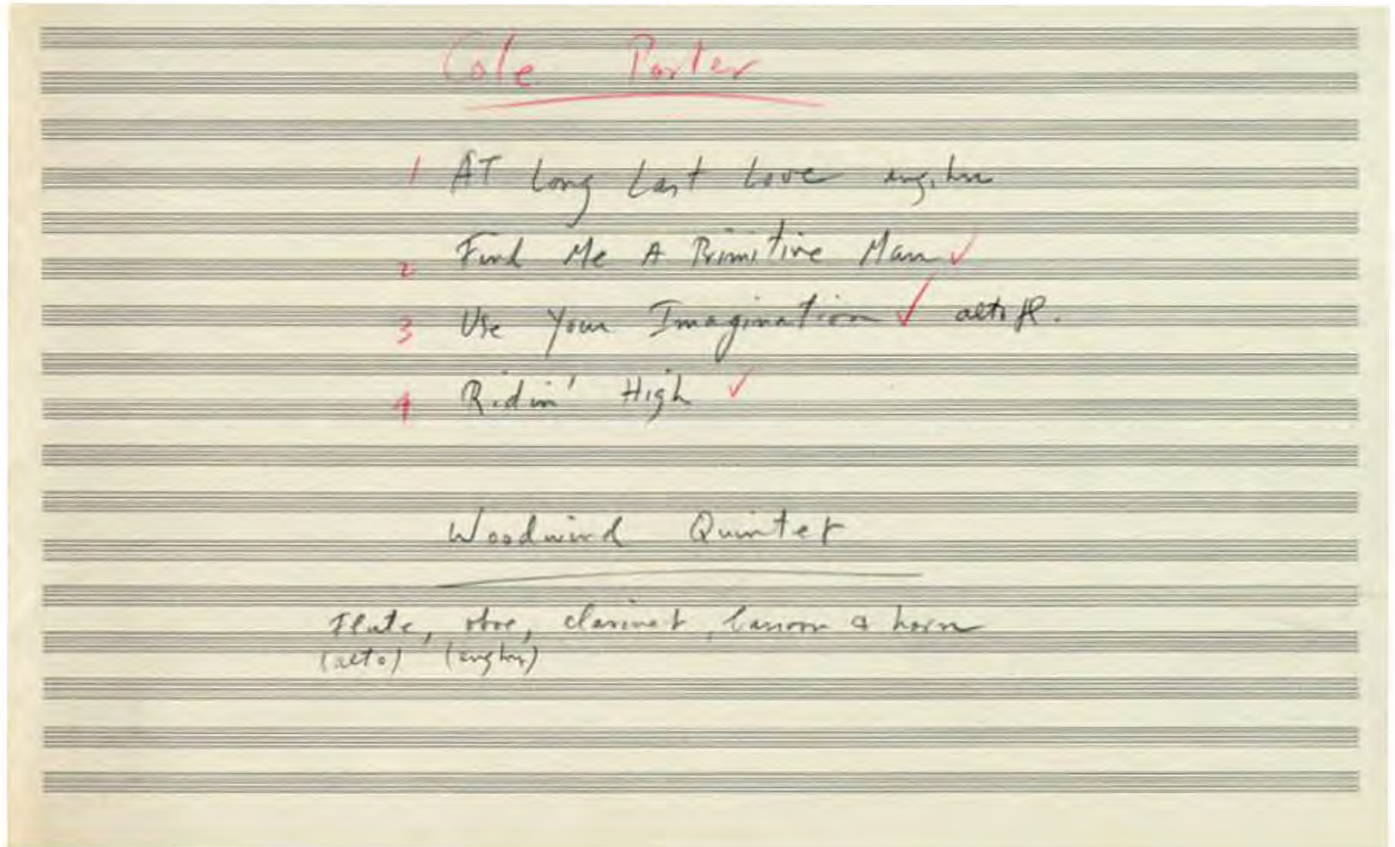 Cole Porter
1 AT Long Last Love eng. hn
2 Find Me A Primitive Man ✓
3 Use Your Imagination ✓ alto fl.
4 Ridin' High ✓
Woodwind Quintet
Flute, oboe, clarinet, bassoon & horn
(alto) (eng hn)